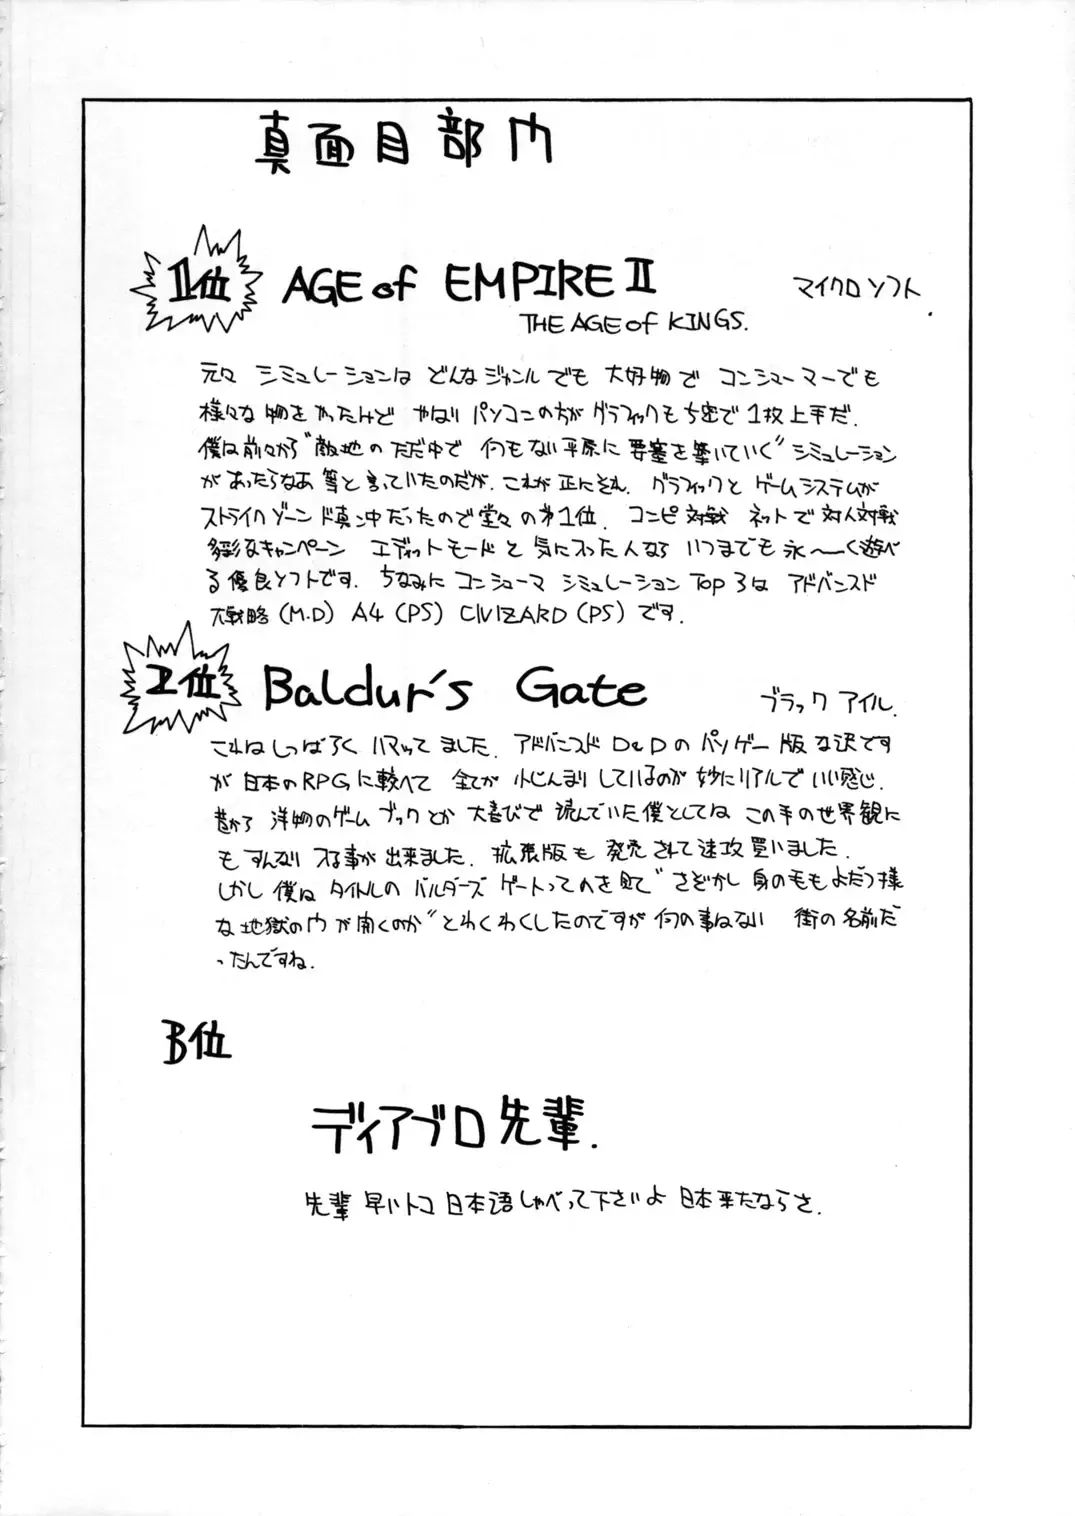 真面目部門
1位 AGE of EMPIRE II マイクロソフト.
THE AGE of KINGS.
元々 シミュレーションは どんなジャンルでも 大好物で コンシューマーでも
様々な 物を やったけど やはり パソコンの方が グラフィックも ち密で 1枚上手だ.
僕は前々から"敵地の ただ中で 何もない平原に 要塞を築いていく"シミュレーション
があったらなあ 等と言っていたのだが. これが 正にそれ. グラフィックと ゲームシステムが
ストライクゾーン ド真ン中だったので 堂々の第1位. コンピ対戦 ネットで 対人対戦
多彩なキャンペーン エディットモードと 気に入った人なら いつまでも永〜く遊べ
る優良ソフトです. ちなみに コンシューマ シミュレーション Top 3は アドバンスド
大戦略 (M.D) A4 (PS) CIVIZARD (PS) です.
2位 Baldur's Gate ブラック アイル.
これはしつばらく ハマッてました. アドバンスド D&Dの パソゲー版 な訳です
が 日本のRPGに較べて 全てが 小じんまりしているのが 妙にリアルで いい感じ.
昔から 洋物のゲームブックとか 大喜びで 読んでいた僕としてね この手の世界観に
も すんなり 入る事が 出来ました. 拡張版も 発売されて速攻買いました.
しかし 僕は タイトルの バルダーズ ゲートってのを見て"さぞかし 身の毛もよだつ様
な 地獄の門が開くのか"とわくわくしたのですが 何の事ねない 街の名前だ
ったんですね.
3位
ディアブロ先輩.
先輩 早いトコ 日本語しゃべって下さいよ 日本来たならさ.